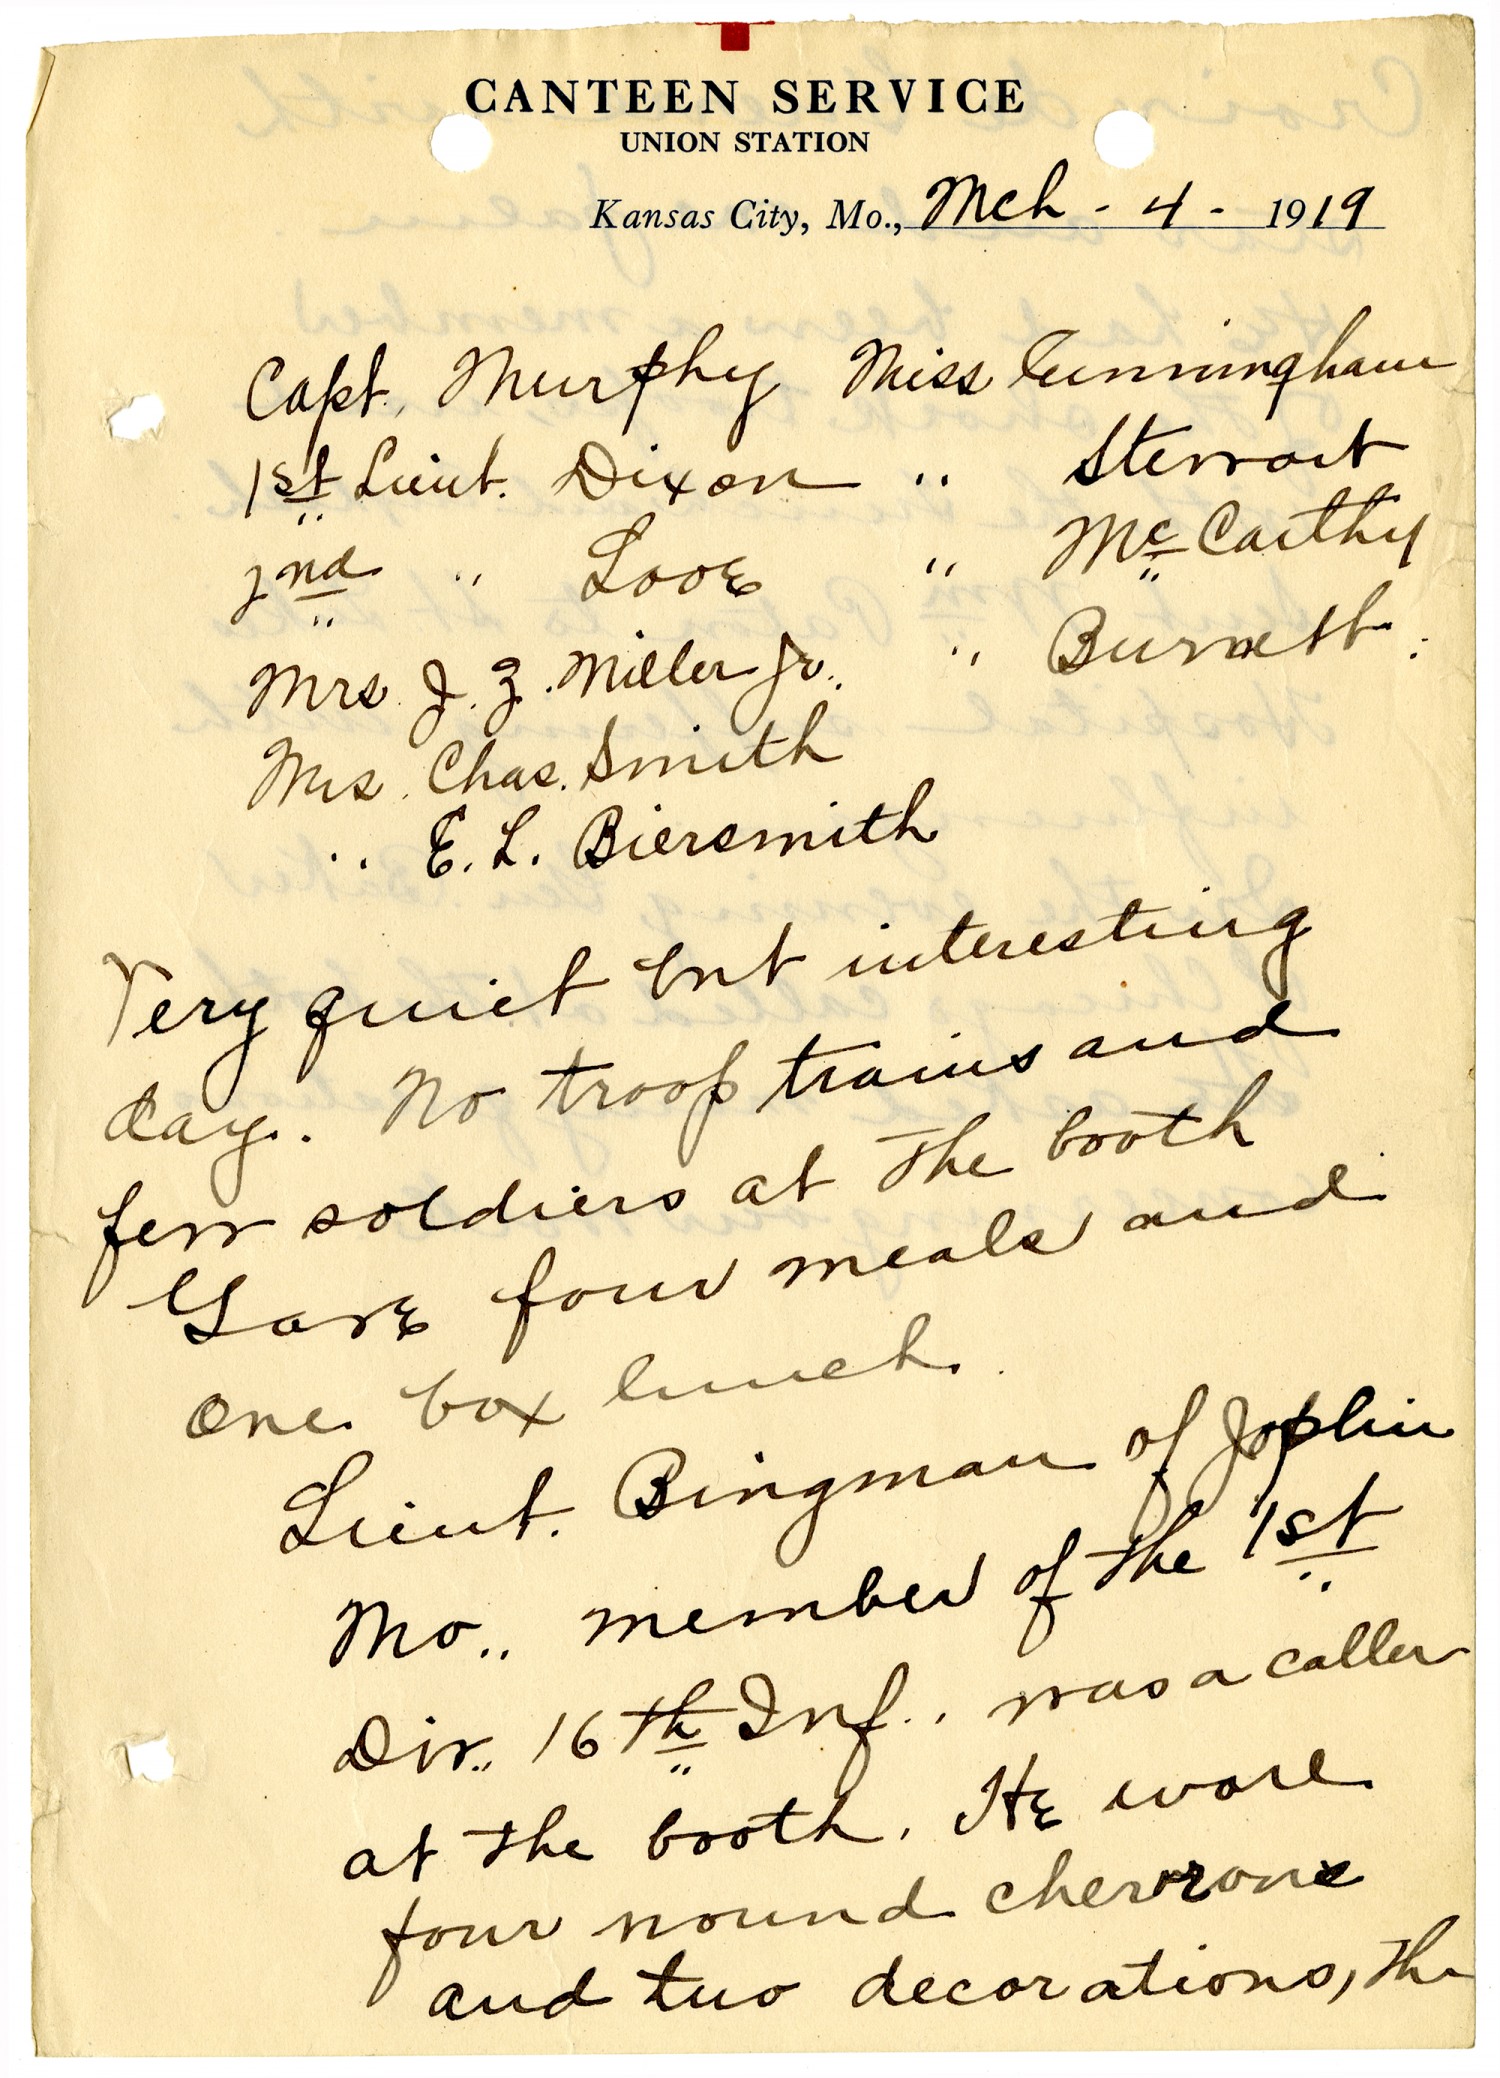 CANTEEN SERVICE
UNION STATION
Kansas City, Mo., Mch - 4 - 1919
Capt. Murphy Miss Cunningham
1st Lieut. Dixon " Stewart
2nd " Love " McCarthy
Mrs J. Z. Miller Jr. " Burnett.
Mrs. Chas. Smith
" E. L. Biersmith
Very quiet but interesting
day. No troop trains and
few soldiers at the booth
Gave four meals and
one box lunch.
Lieut. Bingman of Joplin
Mo., member of the 1st
Div. 16th Inf., was a caller
at the booth. He wore
four wound chevrons
and two decorations, the